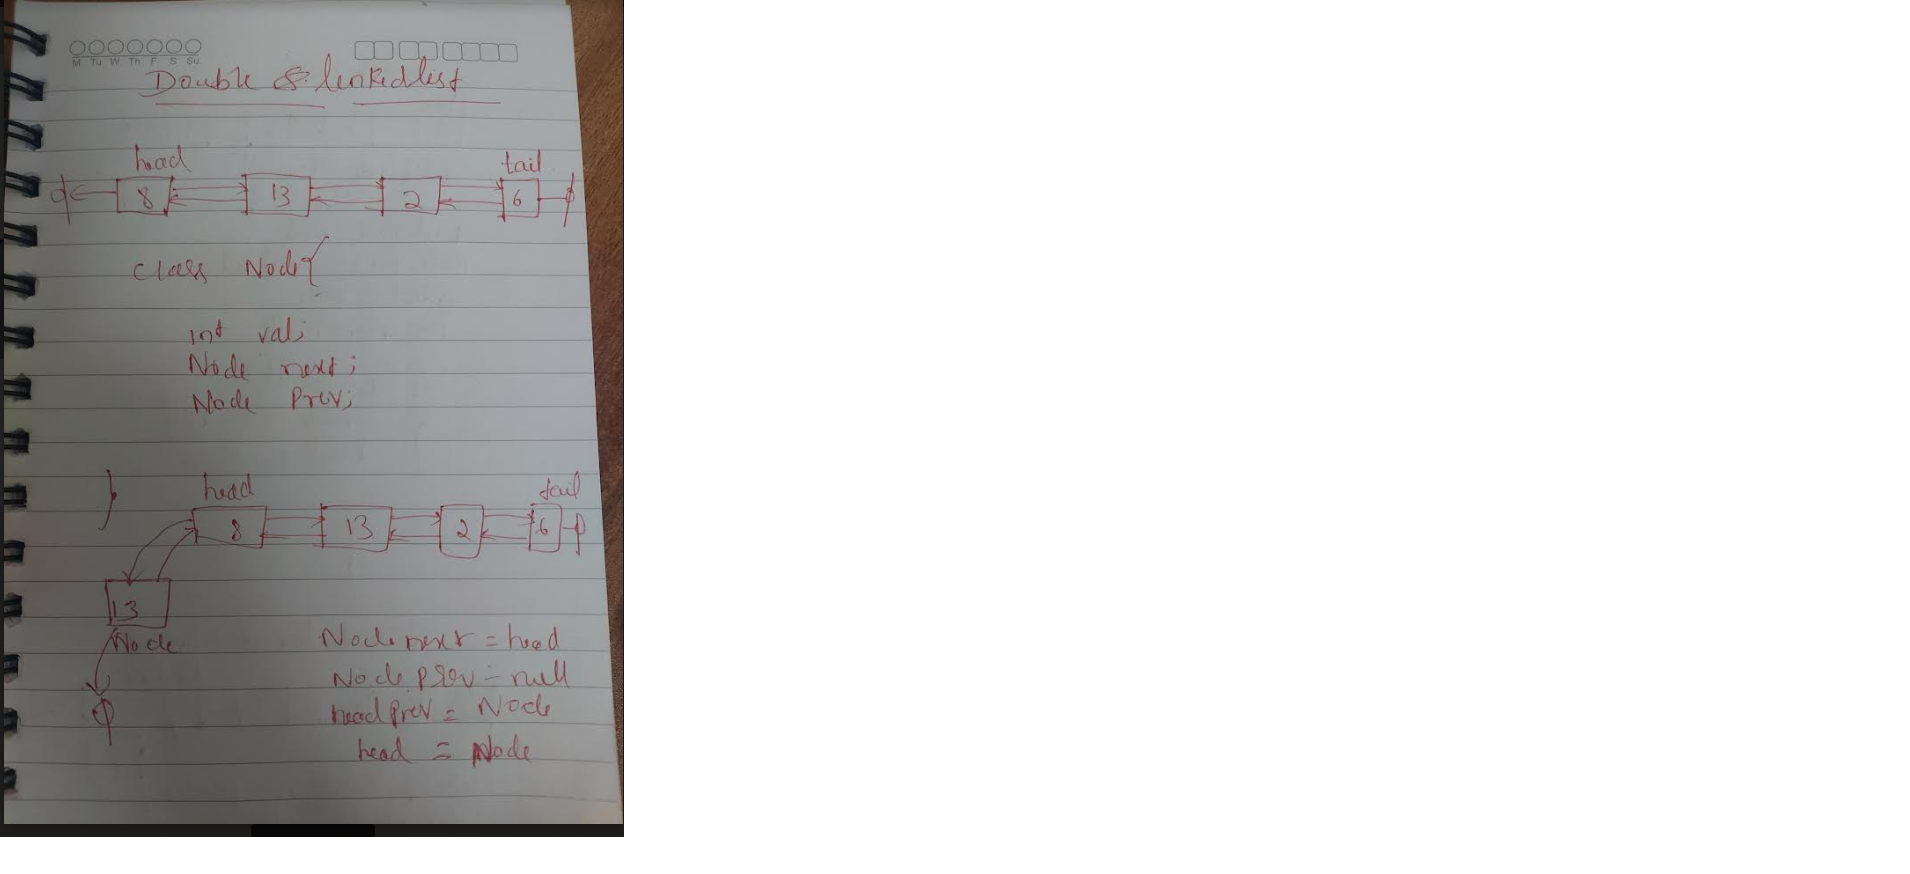 M Tu W Th F S Su
Double & linkedlist
head tail
8 13 2 6
class Node{
int val;
Node next;
Node Prev;
}
head tail
8 13 2 6
13
Node
Node next = head
Node prev = null
head Prev = Node
head = Node